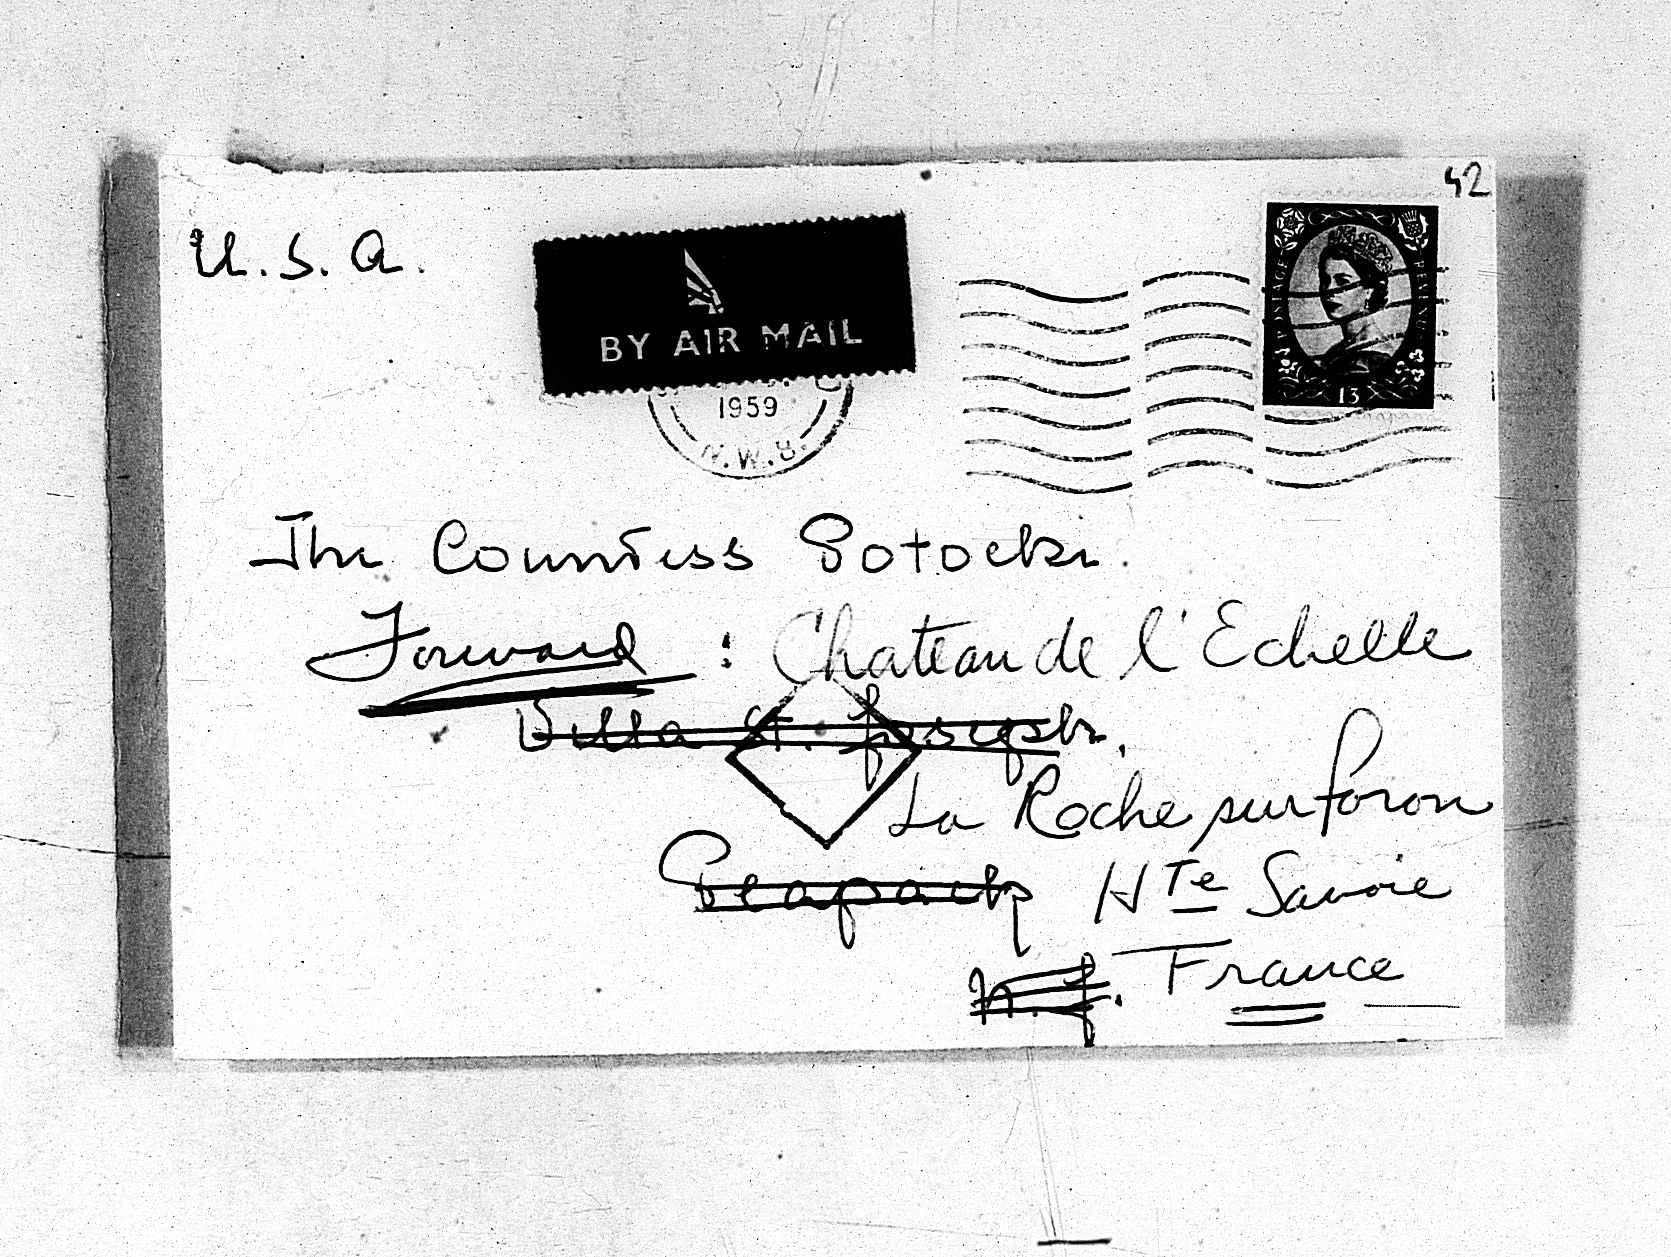 42
U.S.A.
BY AIR MAIL
POSTAGE REVENUE
13
1959
N.W.8.
The Countess Potocki.
Forward : Chateau de l'Echelle
Villa St. Joseph,
La Roche sur Foron
Peapack
Hte Savoie
N.J.
France